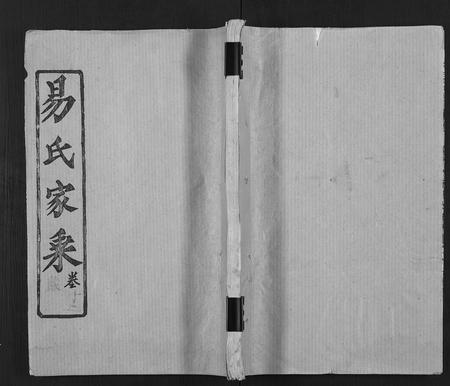 易氏家乘
卷